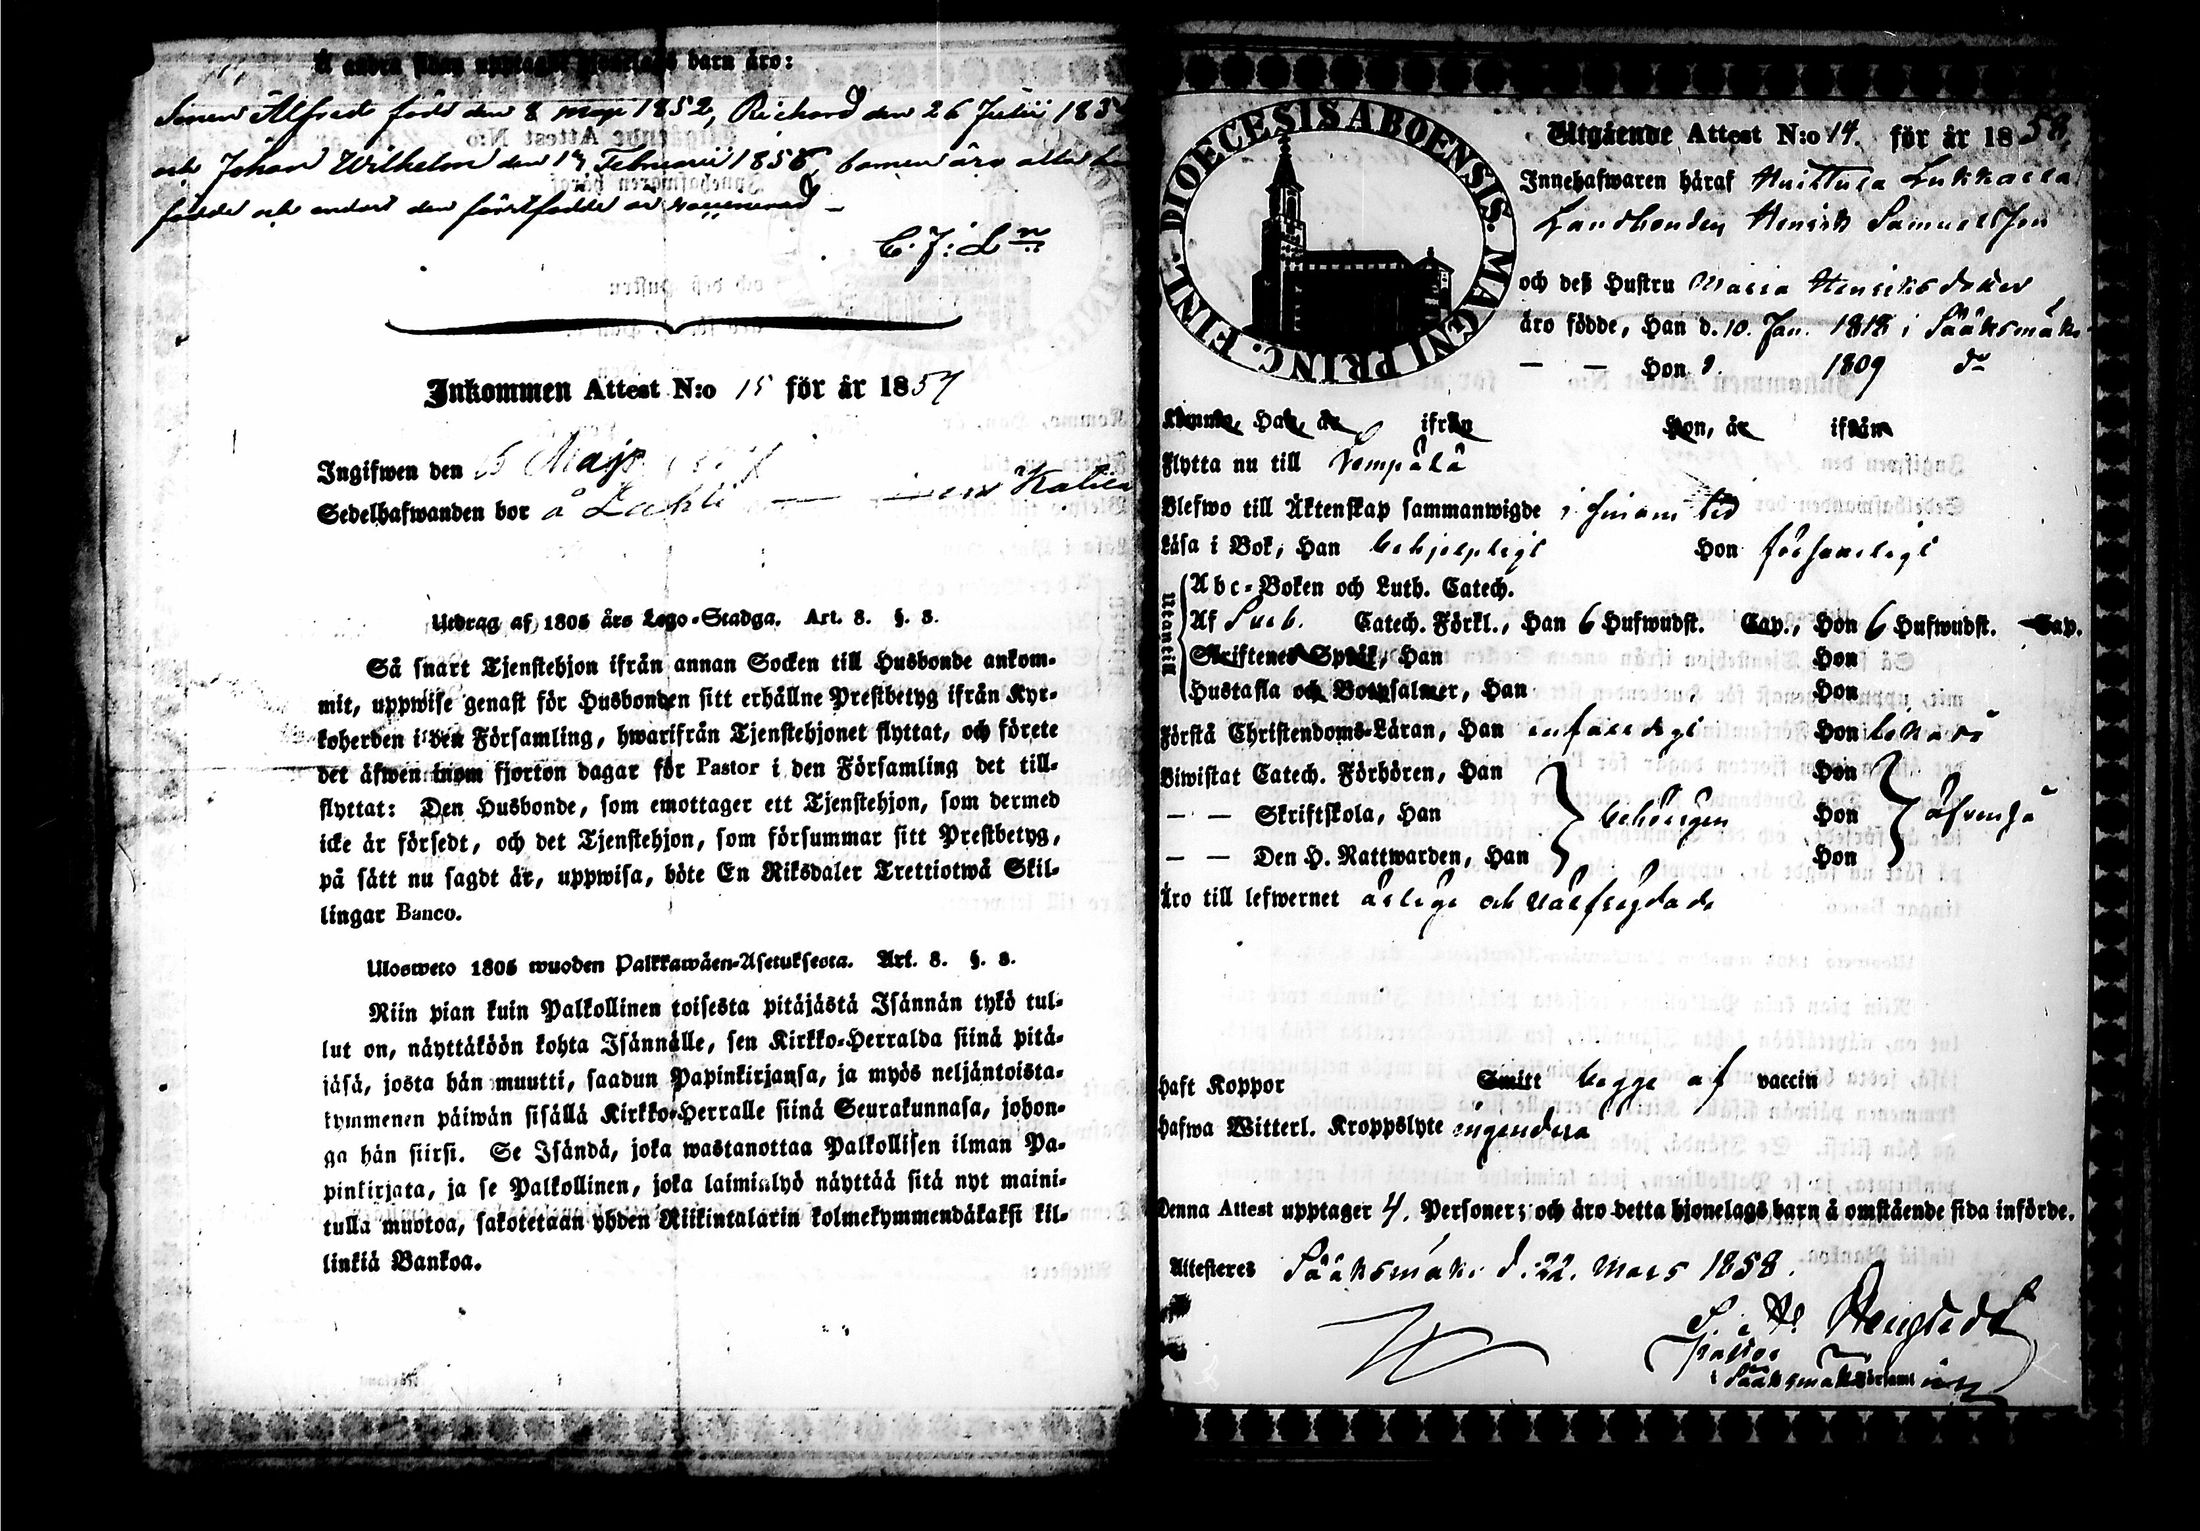 Å andra sidan upptagne hjonelags barn äro:
Sonen Alfred född den 8 Maji 1852, Richard den 26 Julii 185
och Johan Wilhelm den 17 Februarii 1856, barnen äro alla
födde och endast den förstfödde är vaccinerad –
C. J: Ln
Inkommen Attest N:o 15 för år 1857
Ingifwen den 15 Maji
Sedelhafwanden bor å Lahti
Utdrag af 1805 års Lego-Stadga. Art. 8. §. 8.
Så snart Tjenstehjon ifrån annan Socken till Husbonde ankom-
mit, uppwise genast för Husbonden sitt erhållne Prestbetyg ifrån Kyr-
koherden i den Församling, hwarifrån Tjenstehjonet flyttat, och förete
det äfwen inom fjorton dagar för Pastor i den Församling det till-
flyttat: Den Husbonde, som emottager ett Tjenstehjon, som dermed
icke är försedt, och det Tjenstehjon, som försummar sitt Prestbetyg,
på sätt nu sagdt är, uppwisa, böte En Riksdaler Trettiotwå Skil-
lingar Banco.
Ulosweto 1805 wuoden Palkkawäen-Asetuksesta. Art. 8. §. 8.
Niin pian kuin Palkollinen toisesta pitäjästä Isännän tykö tul-
lut on, näyttäköön kohta Isännälle, sen Kirkko-Herralda siinä pitä-
jäsä, josta hän muutti, saadun Papinkirjansa, ja myös neljäntoista-
kymmenen päiwän sisällä Kirkko-Herralle siinä Seurakunnasa, johon-
ga hän siirsi. Se Isändä, joka wastanottaa Palkollisen ilman Pa-
pinkirjata, ja se Palkollinen, joka laiminlyö näyttää sitä nyt maini-
tulla muotoa, sakotetaan yhden Riikintalarin kolmekymmendäkaksi kil-
linkiä Bankoa.
FINL. DIOECESIS ABOENSIS. MAGNI PRINC.
Utgående Attest N:o 14. för år 1858.
Innehafwaren häraf Huittula Lukkarla
Landbonden Henrik Samuelsson
och deß Hustru Maria Henriksdotter
äro födde, Han d. 10. Jan. 1818 i Sääksmäki
— — Hon d. 1809 do
Komne, Han, år ifrån Hon, år ifrån
Flytta nu till Lempälä
Blefwo till Äktenskap sammanwigde i sinom tid
Läsa i Bok, Han behjelpligt Hon försvarligt
Utantill
Abc-Boken och Luth. Catech.
Af Sveb. Catech. Förkl., Han 6 Hufwudst. Cap., Hon 6 Hufwudst. Cap.
Skriftenes Språk, Han Hon
Hustafla och Botpsalmer, Han Hon
Förstå Christendoms-Läran, Han enfaldigt Hon likaså
Biwistat Catech. Förhören, Han Hon
— — Skriftskola, Han behörigen Hon äfvenså
— — Den H. Nattwarden, Han Hon
Äro till lefwernet ärlige och välfrejdade
Haft Koppor Smitt begge af vaccin
Hafwa Witterl. Kroppslyte ingendera
Denna Attest upptager 4. Personer; och äro detta hjonelags barn å omstående sida införde.
Attesteres Sääksmäki d. 22. Mars 1858.
Pastor
i Sääksmäki